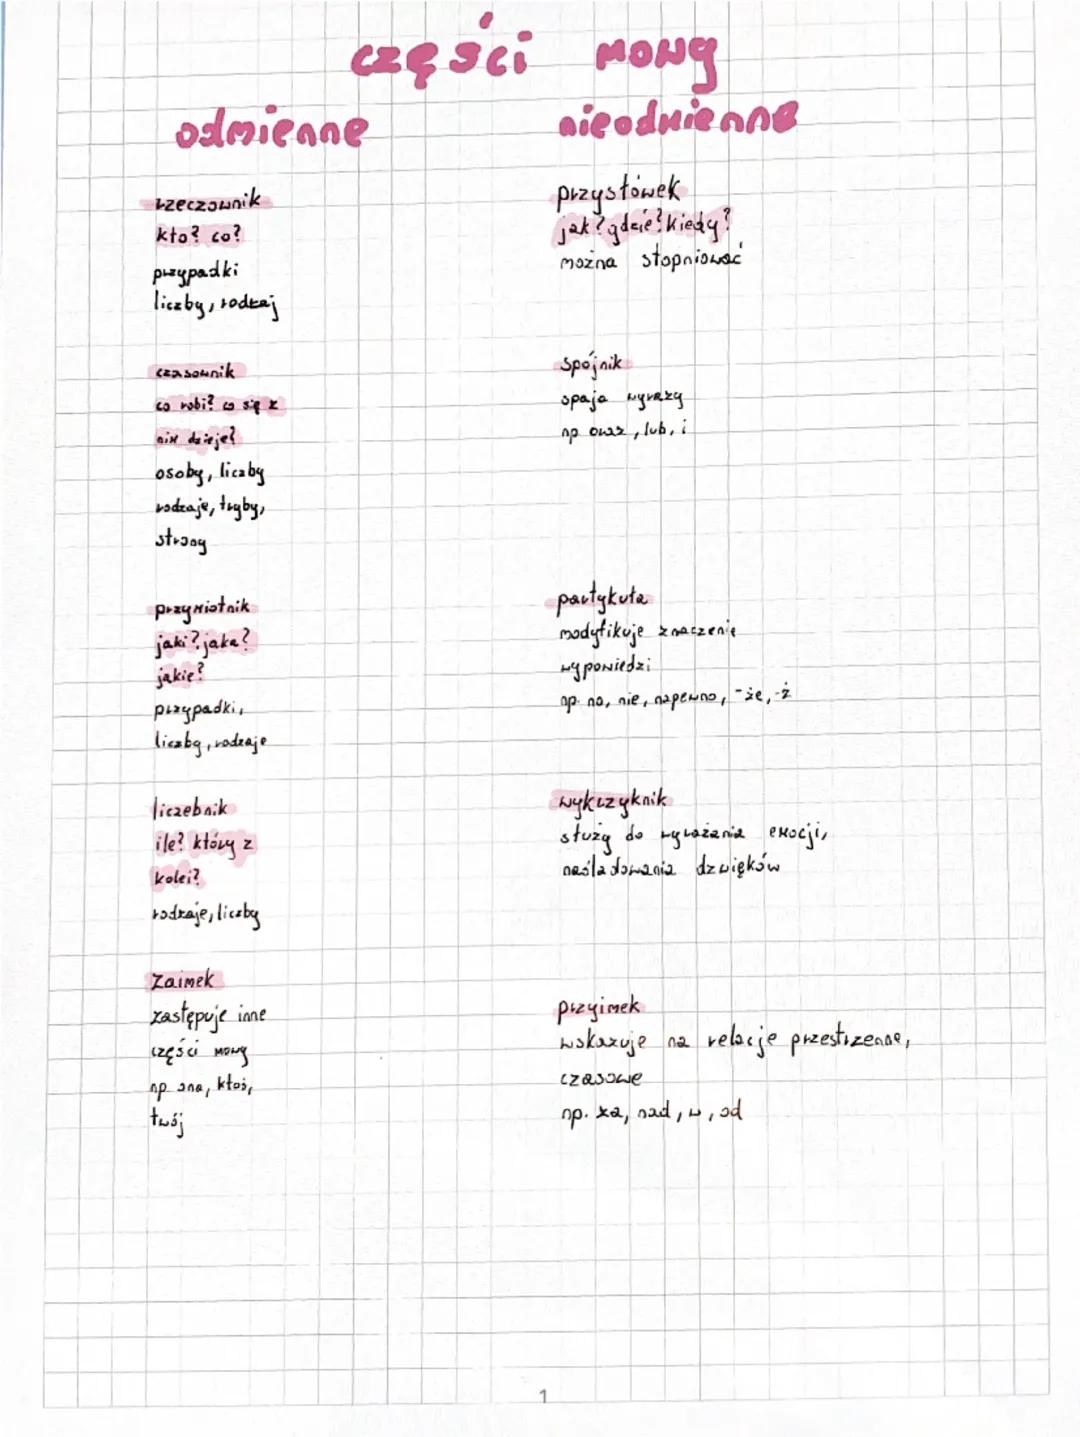 części mowy
odmienne
rzeczownik
kto? co?
przypadki
liczby, rodzaj
czasownik
co robi? co się z
nim dzieje?
osoby, liczby
rodzaje, tryby,
strony
przymiotnik
jaki? jaka?
jakie?
przypadki,
liczby, rodzaje
liczebnik
ile? który z
kolei?
rodzaje, liczby
Zaimek
zastępuje inne
części mowy
np. ona, ktoś,
twój
nieodmienne
przysłówek
jak? gdzie? kiedy?
można stopniować
spójnik
spaja wyrazy
np oraz, lub, i
partykuła
modyfikuje znaczenie
wypowiedzi
np. no, nie, napewno, -że, -ż
wykrzyknik
służy do wyrażania emocji,
naśladowania dzwięków
przyimek
wskazuje na relacje przestrzenne,
czasowe
np. za, nad, w, od
1